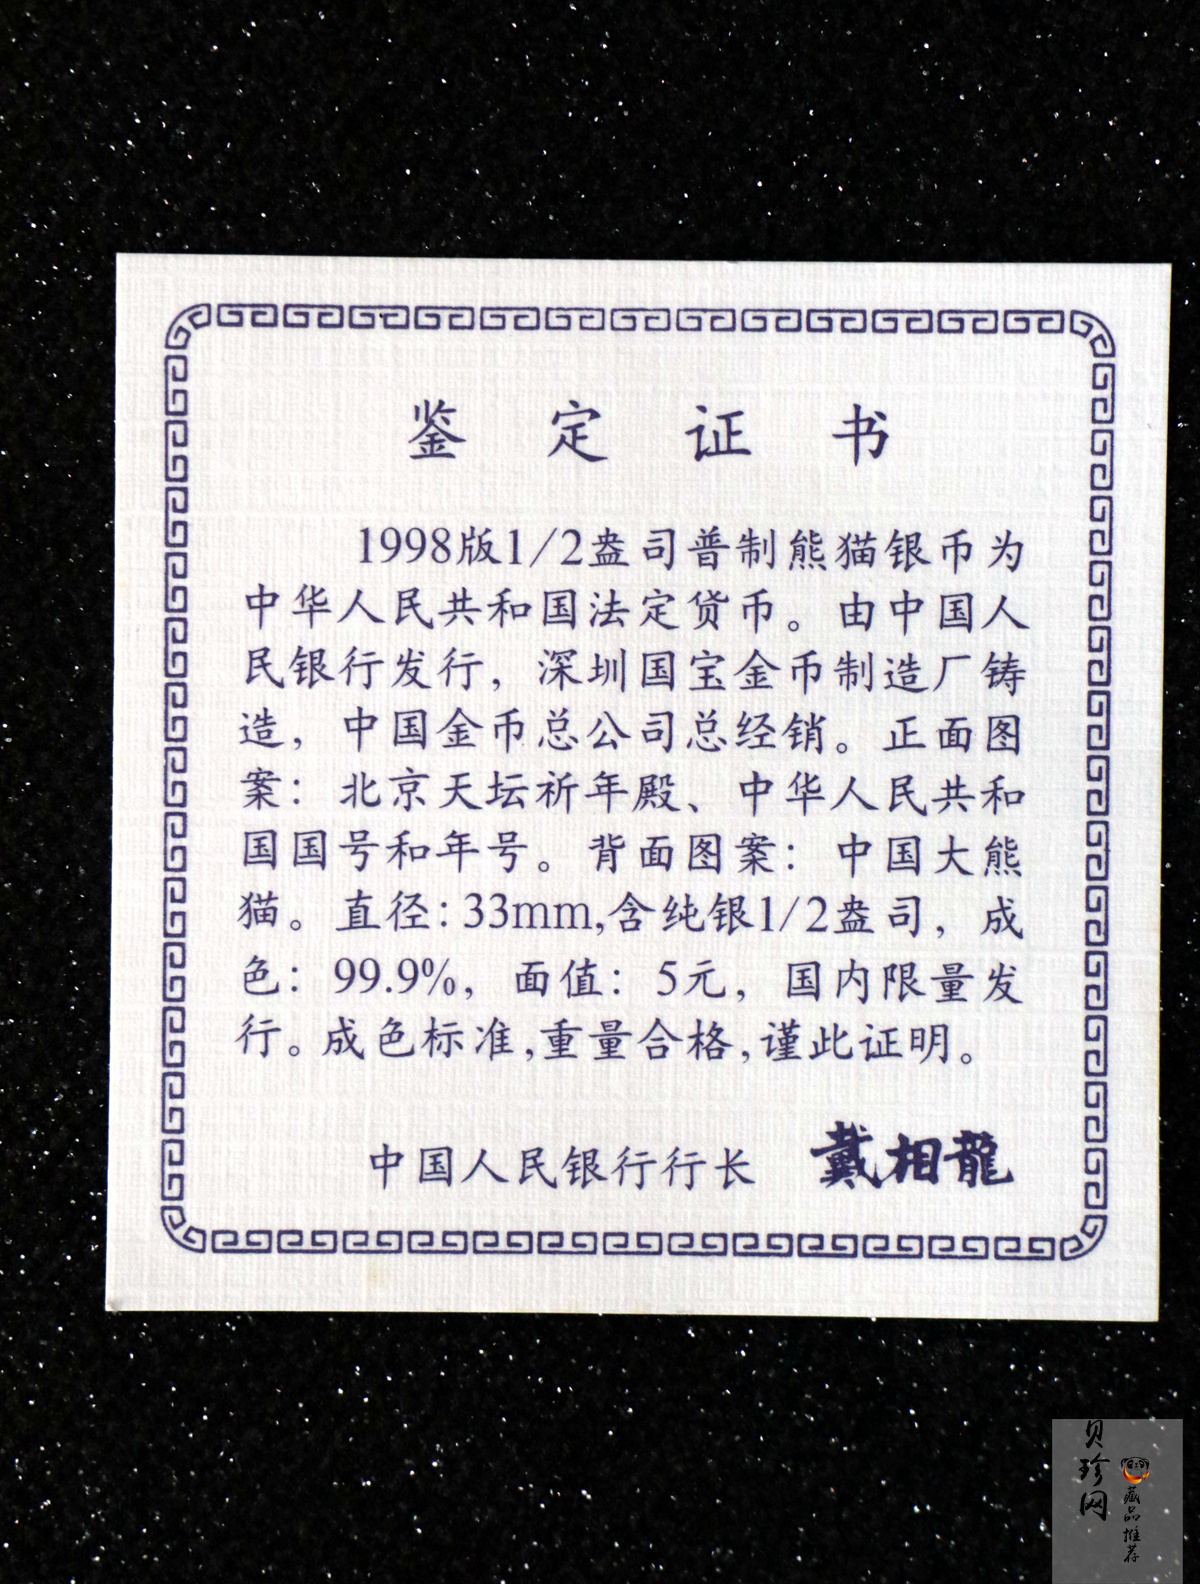 鉴定证书
1998版1/2盎司普制熊猫银币为
中华人民共和国法定货币。由中国人
民银行发行，深圳国宝金币制造厂铸
造，中国金币总公司总经销。正面图
案：北京天坛祈年殿、中华人民共和
国国号和年号。背面图案：中国大熊
猫。直径：33mm,含纯银1/2盎司，成
色：99.9%，面值：5元，国内限量发
行。成色标准,重量合格,谨此证明。
中国人民银行行长 戴相龍
贝珍网
藏品推荐